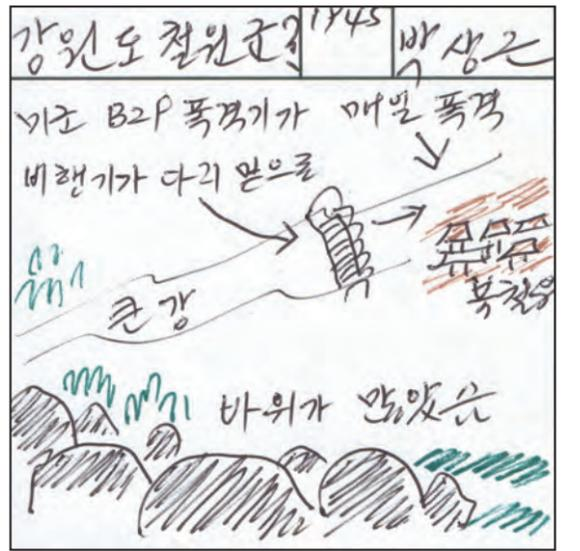 강원도 철원군? 1945 박생근
미군 B29 폭격기가 매일 폭격
비행기가 다리 밑으로
큰 강
북철원
바위가